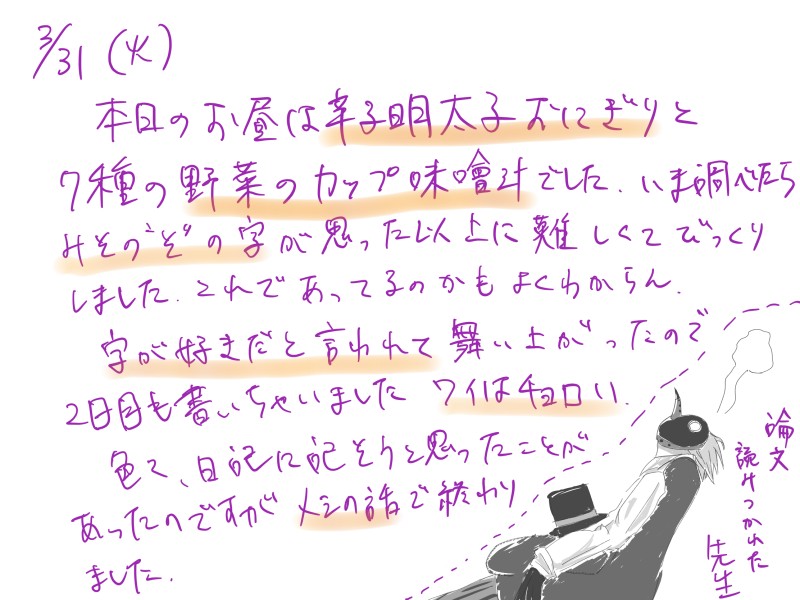 3/31(火)
本日のお昼は辛子明太子おにぎりと
7種の野菜のカップ味噌汁でした.いま調べたら
みその"そ"の字が思った以上に難しくてびっくり
しました.これであってるのかもよくわからん.
字が好きだと言われて舞い上がったので
2日目も書いちゃいました ワイはチョロい.
色々、日記に記そうと思ったことが
あったのですがメシの話で終わり
ました.
論文
読みつかれた
先生